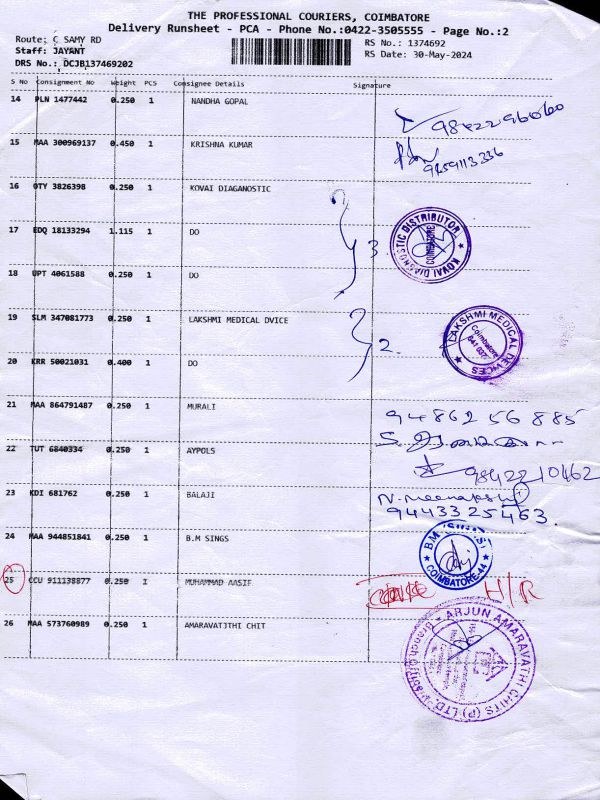 THE PROFESSIONAL COURIERS, COIMBATORE
Delivery Runsheet - PCA - Phone No.:0422-3505555 - Page No.:2
Route: C SAMY RD
RS No.: 1374692
Staff: JAYANT
RS Date: 30-May-2024
DRS No.: DCJB137469202
S No Consignment No Weight PCS Consignee Details Signature
14 PLN 1477442 0.250 1 NANDHA GOPAL
15 MAA 300969137 0.450 1 KRISHNA KUMAR
9459113336
16 OTY 3826398 0.250 1 KOVAI DIAGANOSTIC
17 EDQ 18133294 1.115 1 DO
3
KOVAI DIAGNOSTIC DISTRIBUTOR
COIMBATORE
18 UPT 4061588 0.250 1 DO
19 SLM 347081773 0.250 1 LAKSHMI MEDICAL DVICE
2.
LAKSHMI MEDICAL DEVICES
Coimbatore
20 KRR 50021031 0.400 1 DO
21 MAA 864791487 0.250 1 MURALI
9486256885
22 TUT 6840334 0.250 1 AYPOLS
9842210462
23 KDI 681762 0.250 1 BALAJI
N. Meenakshi
9443325463.
24 MAA 944851841 0.250 1 B.M SINGS
COIMBATORE-44
25 CCU 911138877 0.250 1 MUHAMMAD AASIF
H/R
26 MAA 573760989 0.250 1 AMARAVATITHI CHIT
ARJUN AMARAVATHI CHITS (P) LTD.